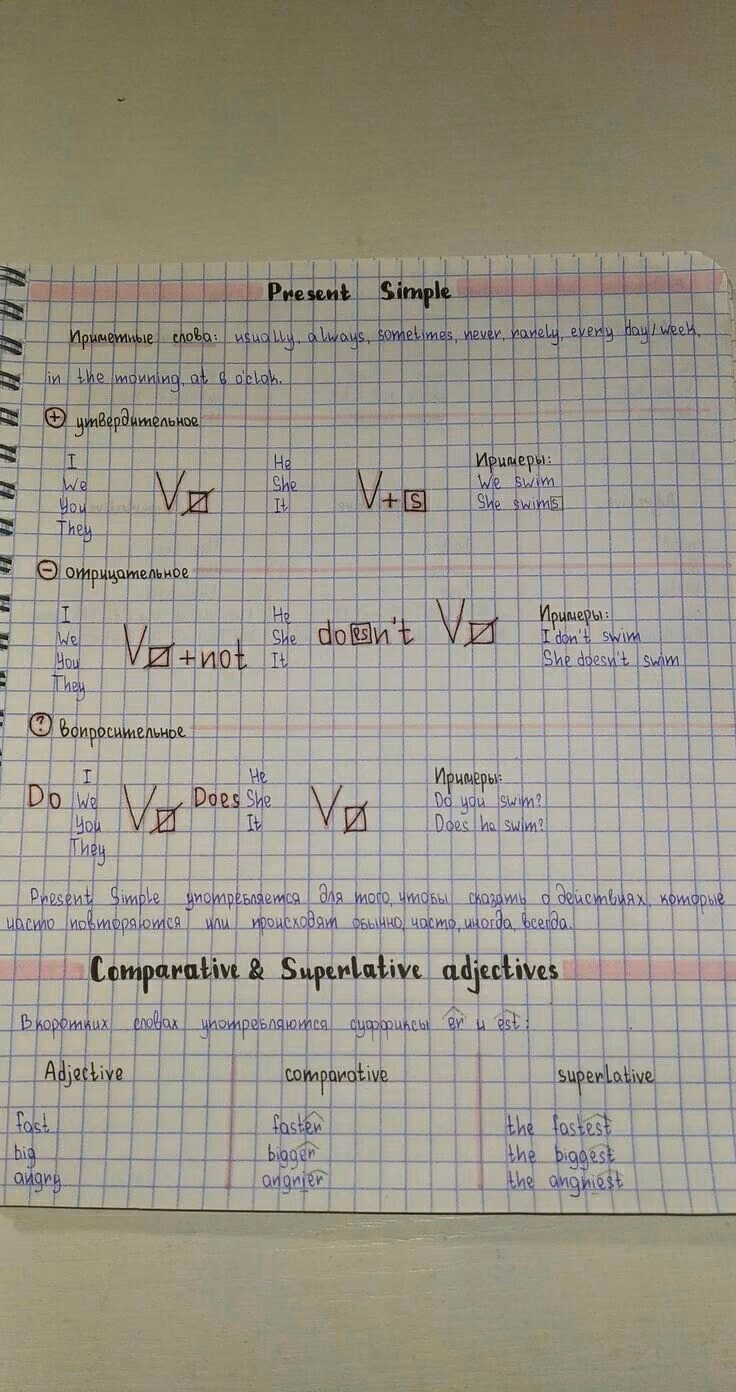 Present Simple
Приметные слова: usually, always, sometimes, never, rarely, every day/week,
in the mourning, at 6 o'clok.
+ утвердительное
I He Примеры:
We V∅ She V+s We swim
You It She swims
They
- отрицательное
I He Примеры:
We V∅+not She doesn't V∅ I don't swim
You It She doesn't swim
They
? вопросительное
I He Примеры:
Do We V∅ Does She V∅ Do you swim?
You It Does he swim?
They
Present Simple употребляется для того, чтобы сказать о действиях, которые
часто повторяются или происходят обычно, часто, иногда, всегда.
Comparative & Superlative adjectives
В коротких словах употребляются суффиксы er и est:
Adjective comparative superlative
fast faster the fastest
big bigger the biggest
angry angrier the angriest